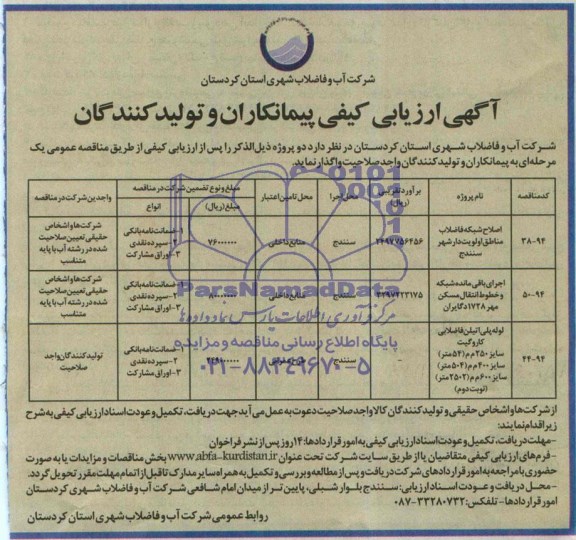 شرکت آب و فاضلاب شهری استان کردستان
آگهی ارزیابی کیفی پیمانکاران و تولیدکنندگان
شرکت آب و فاضلاب شهری استان کردستان در نظر دارد دو پروژه ذیل الذکر را پس از ارزیابی کیفی از طریق مناقصه عمومی یک
مرحله‌ای به پیمانکاران و تولیدکنندگان واجد صلاحیت واگذار نماید.
کد مناقصه | نام پروژه | برآورد تقریبی (ریال) | محل اجرا | محل تامین اعتبار | مبلغ و نوع تضمین شرکت در مناقصه | واجدین شرکت در مناقصه
مبلغ (ریال) | انواع
۳۸-۹۴ | اصلاح شبکه فاضلاب مناطق اولویت دار شهر سنندج | سنندج | منابع داخلی | ۷۶۰۰۰۰۰۰ | ۱-ضمانت نامه بانکی ۲-سپرده نقدی ۳-اوراق مشارکت | شرکت‌ها و اشخاص حقیقی تعیین صلاحیت شده در رشته آب با پایه متناسب
۵۰-۹۴ | اجرای باقی مانده شبکه و خطوط انتقال مسکن مهر ۱۷۲۸ دگایران | سنندج | منابع داخلی | ۱-ضمانت نامه بانکی ۲-سپرده نقدی ۳-اوراق مشارکت | شرکت‌ها و اشخاص حقیقی تعیین صلاحیت شده در رشته آب با پایه متناسب
۴۴-۹۴ | لوله پلی اتیلن فاضلابی کاروگیت سایز ۲۵۰ م م (۵۴ متر) سایز ۴۰۰ م م (۵۰۴ متر) سایز ۶۰۰ م م (۲۵۰۲ متر) (نوبت دوم) | - | سنندج | ۱-ضمانت نامه بانکی ۲-سپرده نقدی ۳-اوراق مشارکت | تولیدکنندگان واجد صلاحیت
ParsNamadData
مرکز فرآوری اطلاعات پارس نماد داده‌ها
پایگاه اطلاع رسانی مناقصه و مزایده
۰۲۱-۸۸۳۴۹۶۷۰-۵
از شرکت‌ها و اشخاص حقیقی و تولیدکنندگان کالا واجد صلاحیت دعوت به عمل می آید جهت دریافت، تکمیل و عودت اسناد ارزیابی کیفی به شرح
زیر اقدام نمایند:
-مهلت دریافت، تکمیل و عودت اسناد ارزیابی کیفی به امور قراردادها: ۱۴ روز پس از نشر فراخوان
-فرم‌های ارزیابی کیفی متقاضیان یا از طریق سایت شرکت تحت عنوان www.abfa-kurdistan.ir بخش مناقصات و مزایدات یا به صورت
حضوری با مراجعه به امور قراردادهای شرکت دریافت و پس از مطالعه و بررسی و تکمیل به همراه سایر مدارک تا قبل از اتمام مهلت مقرر تحویل گردد.
-محل دریافت و عودت اسناد ارزیابی: سنندج بلوار شبلی، پایین‌تر از میدان امام شافعی شرکت آب و فاضلاب شهری استان کردستان
امور قراردادها - تلفکس: ۳۳۲۸۰۷۳۲-۰۸۷
روابط عمومی شرکت آب و فاضلاب شهری استان کردستان